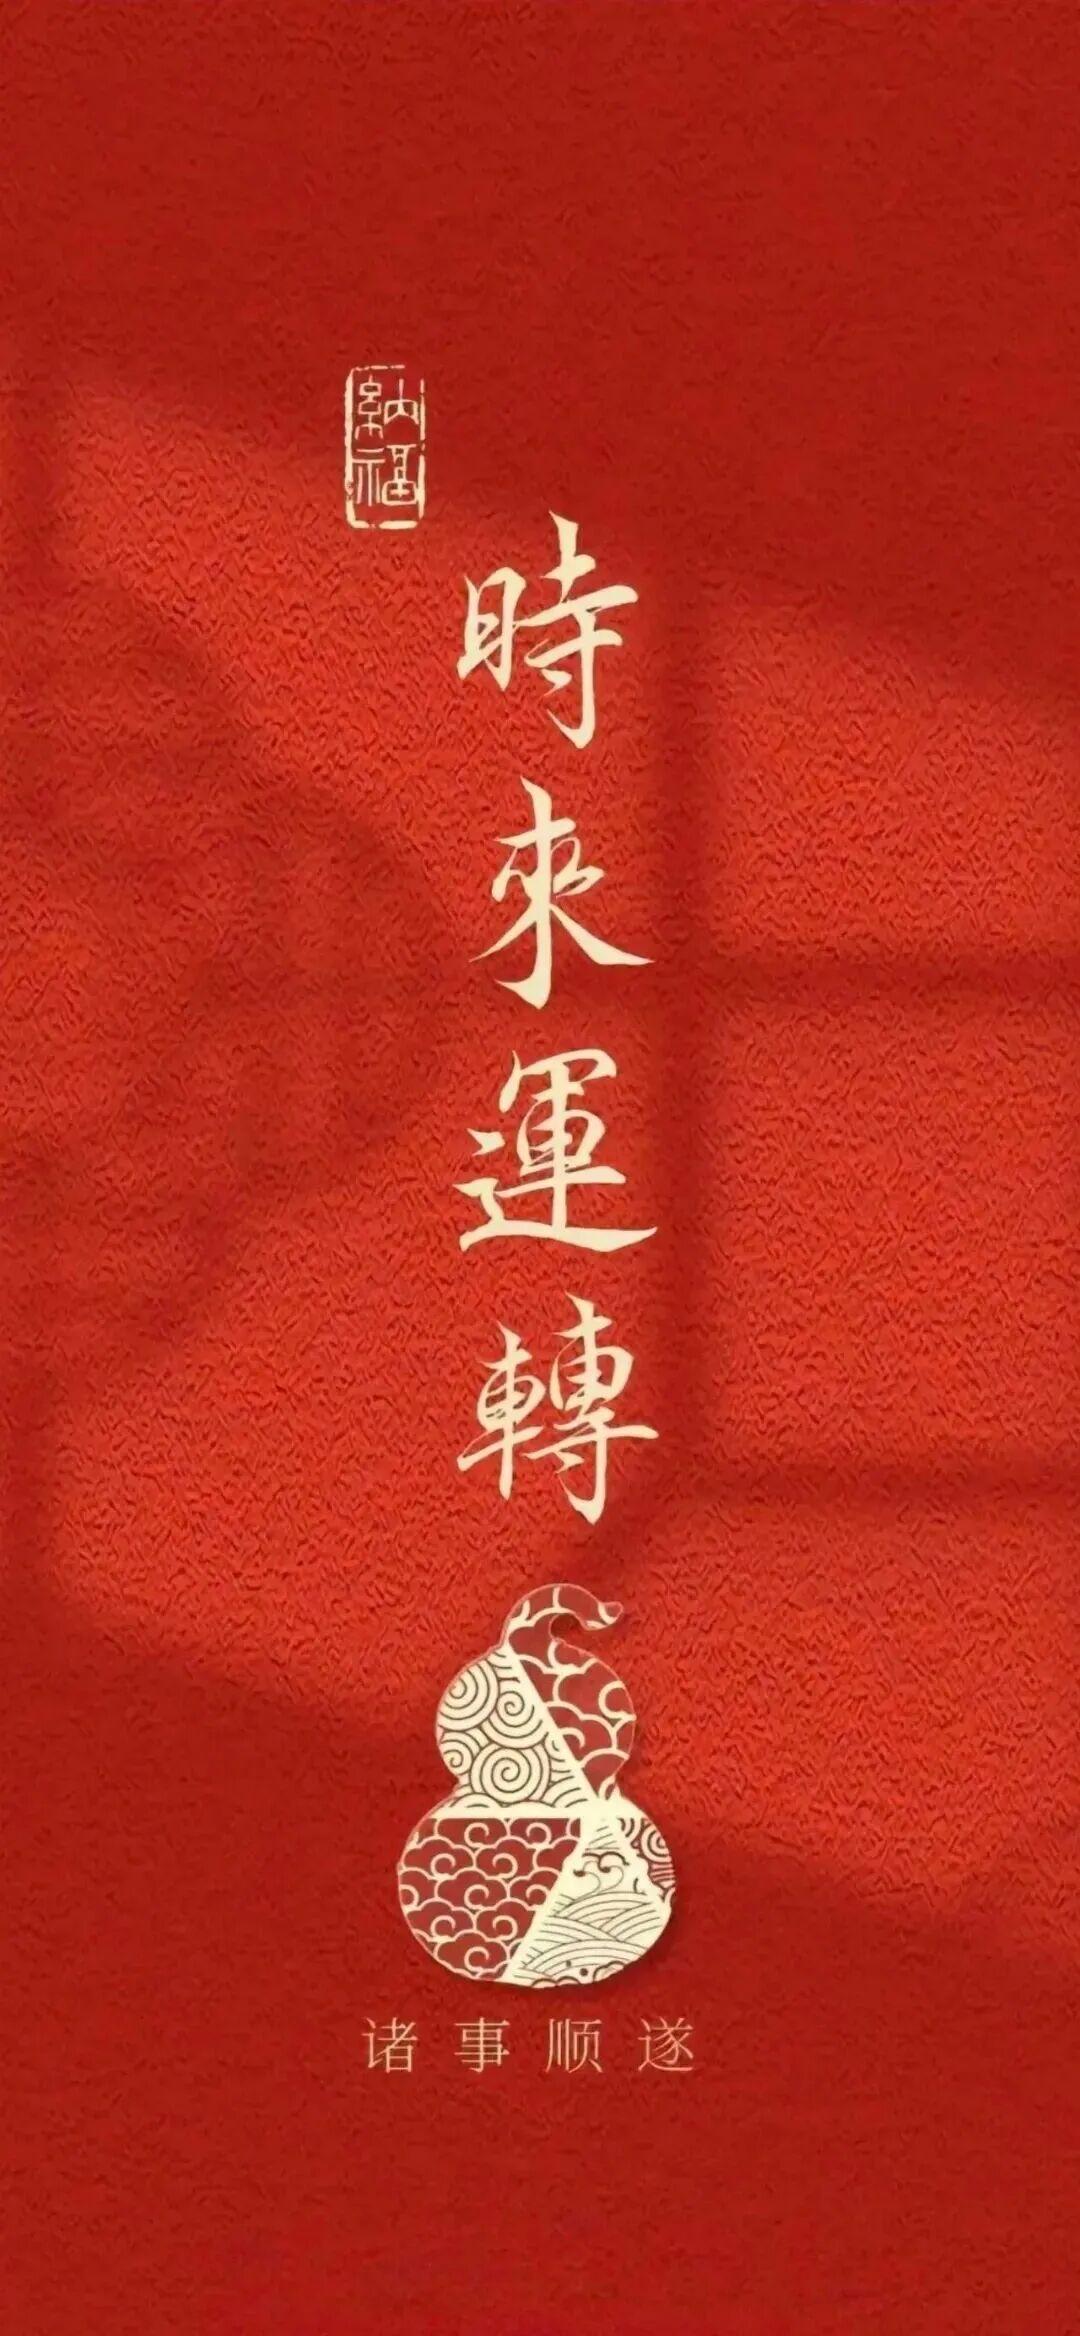 納福
時來運轉
诸事顺遂